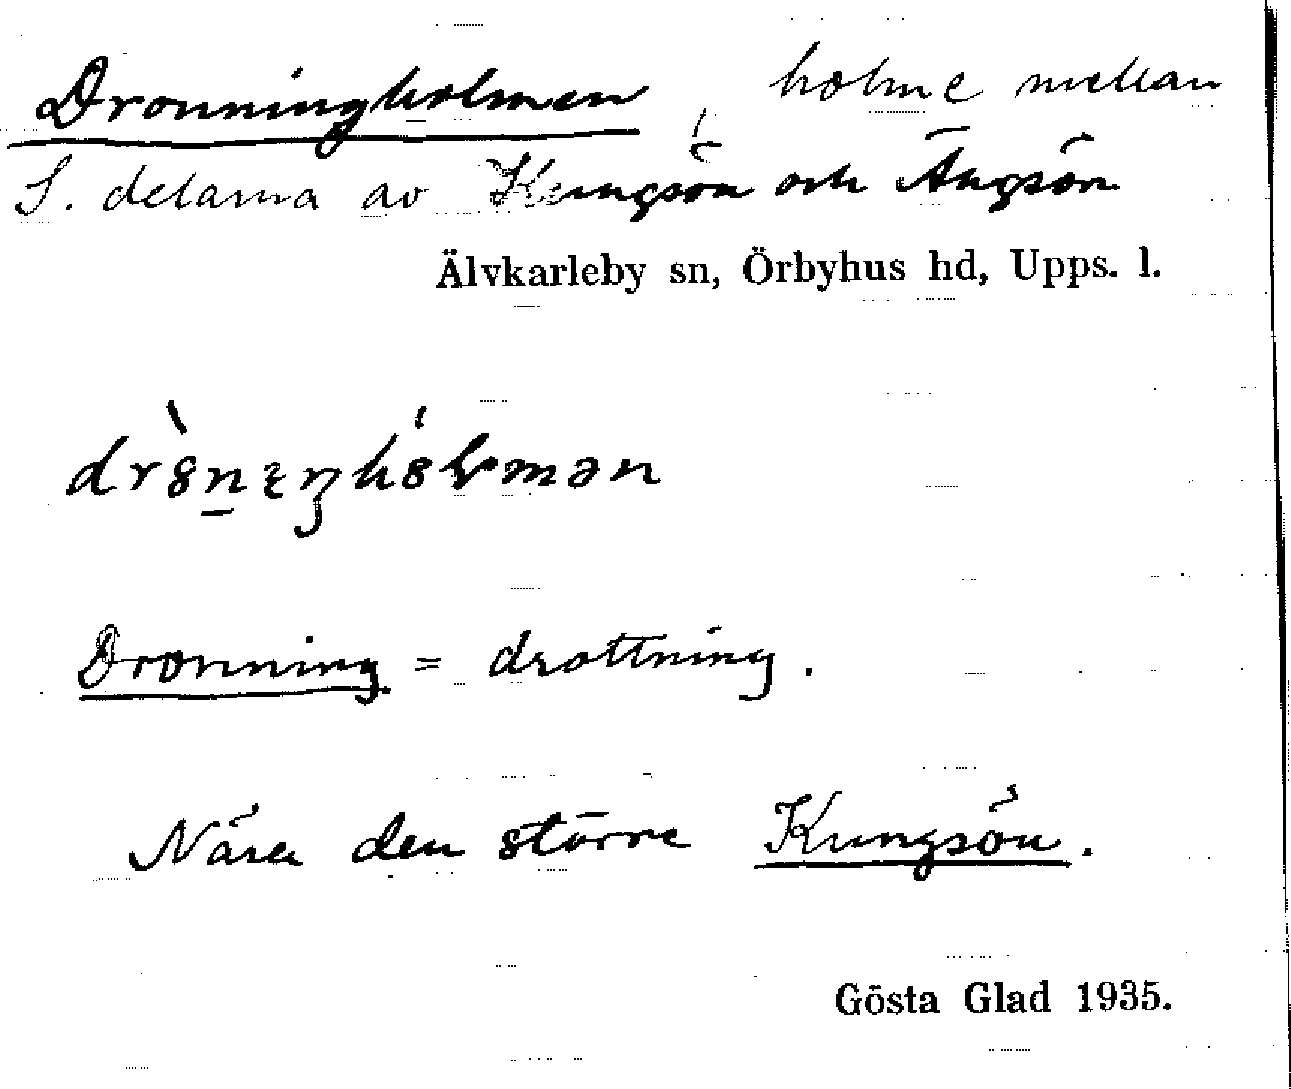 Dronningholmen, holme mellan
S. delarna av Kungsön och Ängsön
Älvkarleby sn, Örbyhus hd, Upps. l.
Dronning = drottning.
Nära den större Kungsön.
Gösta Glad 1935.